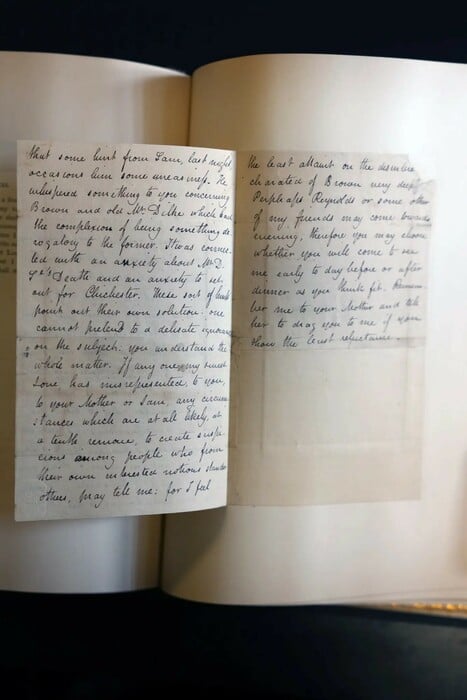 that some hint from Sam, last night
occasions him some uneasiness. He
whispered something to you concerning
Brown and old Mr Dilke which had
the complexion of being something de
rogatory to the former. It was connec
ted with an anxiety about Mr D.
Sr's death and an anxiety to set
out for Chichester. These sort of hints
point out their own solution: one
cannot pretend to a delicate ignorance
on the subject: you understand the
whole matter. If any one, my sweet
Love, has misrepresented, to you,
to your Mother or Sam, any circum
stances which are at all likely, at
a tenth remove, to create suspi
cions among people who from
their own interested notions slander
others, pray tell me: for I feel
the least attaint on the disinte
charated of Brown very deeply.
Perphaps Reynolds or some other
of my friends may come towards
evening, therefore you may choose
whether you will come to see
me early to day before or after
dinner as you think fit. Remem
ber me to your Mother and tell
her to drag you to me if you
show the least reluctance -